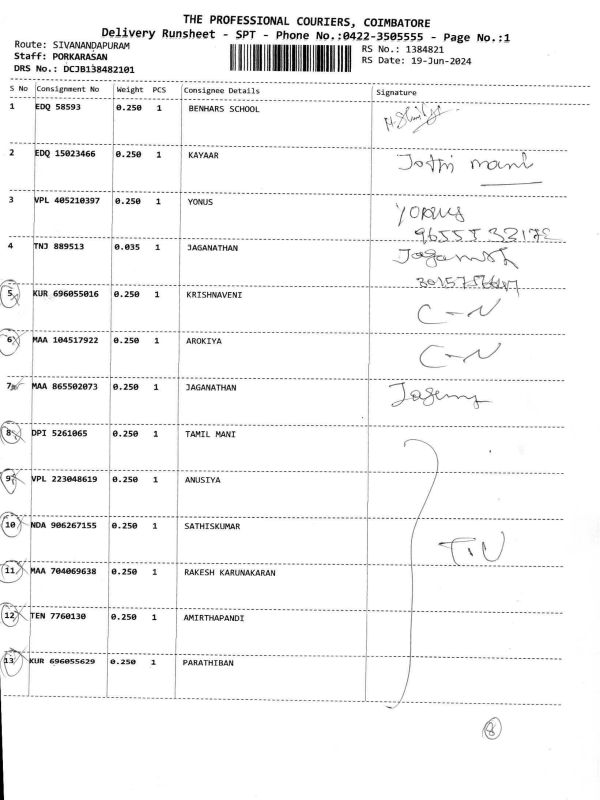 THE PROFESSIONAL COURIERS, COIMBATORE
Delivery Runsheet - SPT - Phone No.:0422-3505555 - Page No.:1
Route: SIVANANDAPURAM RS No.: 1384821
Staff: PORKARASAN RS Date: 19-Jun-2024
DRS No.: DCJB138482101
S No Consignment No Weight PCS Consignee Details Signature
1 EDQ 58593 0.250 1 BENHARS SCHOOL
2 EDQ 15023466 0.250 1 KAYAAR Jothi mani
3 VPL 405210397 0.250 1 YONUS Yonus
4 TNJ 889513 0.035 1 JAGANATHAN
5 KUR 696055016 0.250 1 KRISHNAVENI C-N
6 MAA 104517922 0.250 1 AROKIYA C-N
7 MAA 865502073 0.250 1 JAGANATHAN
8 DPI 5261065 0.250 1 TAMIL MANI
9 VPL 223048619 0.250 1 ANUSIYA
10 NDA 906267155 0.250 1 SATHISKUMAR
11 MAA 704069638 0.250 1 RAKESH KARUNAKARAN
12 TEN 7760130 0.250 1 AMIRTHAPANDI
13 KUR 696055629 0.250 1 PARATHIBAN
8